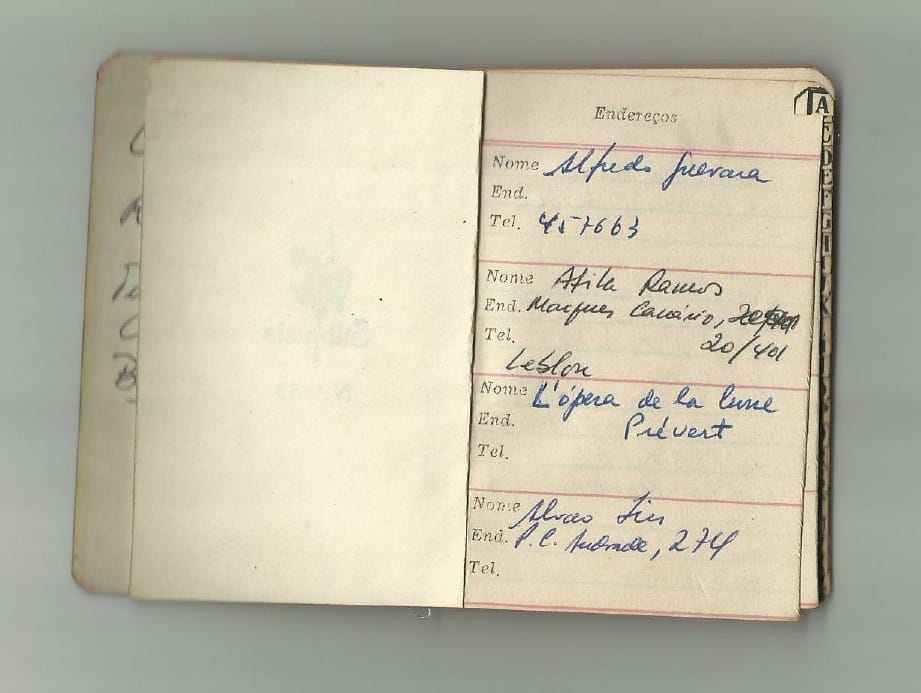 Endereços
A
Nome Alfredo Guevara
End.
Tel. 457663
Nome Atila Ramos
End. Marques Canário,
20/401
Tel.
Leblon
Nome L'ópera de la lune
Prévert
End.
Tel.
Nome Alvaro
End. P.C. Andrade, 274
Tel.